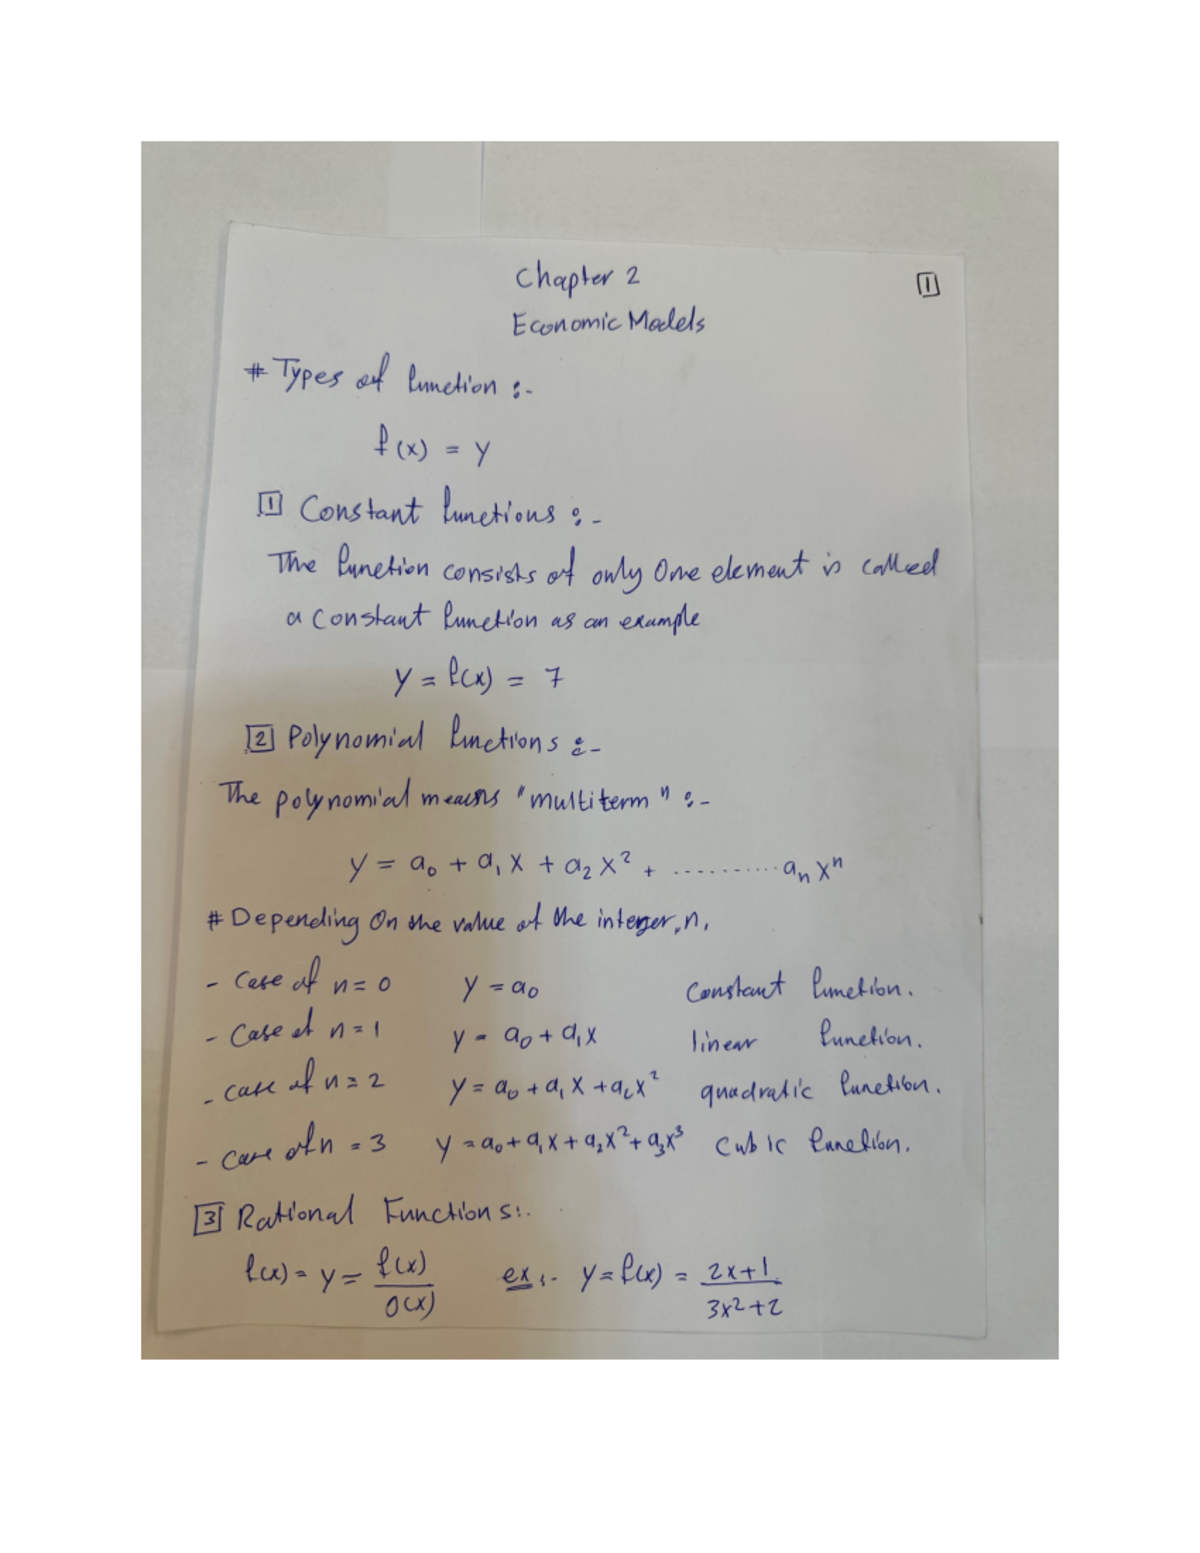 Chapter 2
[1]
Economic Models
# Types of function :-
f(x) = y
[1] Constant functions :-
The function consists of only One element is called
a constant function as an example
y = f(x) = 7
[2] Polynomial functions :-
The polynomial means "multiterm" :-
y = a₀ + a₁x + a₂x² + .......... aₙxⁿ
# Depending On the value of the integer, n,
- Case of n = 0 y = a₀ constant function.
- Case of n = 1 y = a₀ + a₁x linear function.
- case of n = 2 y = a₀ + a₁x + a₂x² quadratic function.
- case of n = 3 y = a₀ + a₁x + a₂x² + a₃x³ cubic function.
[3] Rational Functions:-
f(x) = y = f(x)/O(x) ex :- y = f(x) = 2x+1/3x²+2